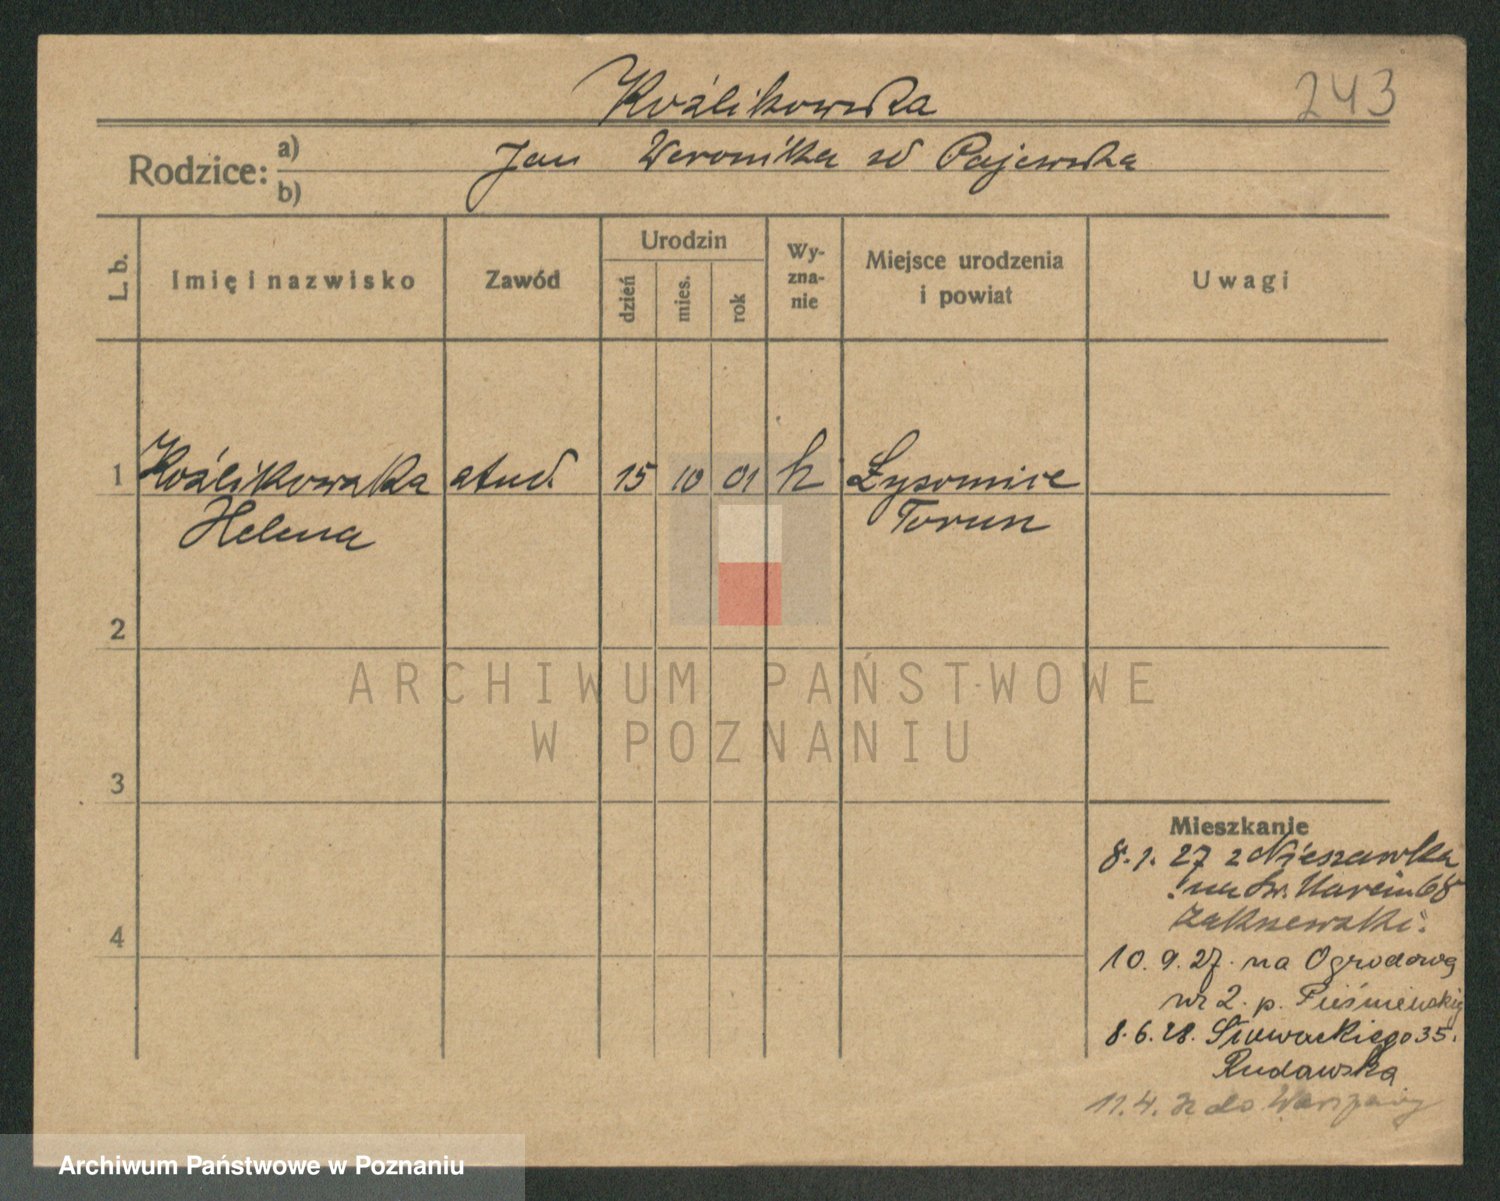 Koźlikowska
243
Rodzice: a)
b)
Jan Weronika zd Pajewska
L. b.
Imię i nazwisko
Zawód
Urodzin
dzień
mies.
rok
Wy-
zna-
nie
Miejsce urodzenia
i powiat
Uwagi
1 Koźlikowska stud. 15 10 01 k Łysomice
Helena Toruń
2
3
4
ARCHIWUM PAŃSTWOWE
W POZNANIU
Mieszkanie
8.1.27 z Nieszawka
na Św. Marcin 68
10.9.27. na Ogrodową
nr 2. p.
8.6.28. Słowackiego 35.
Rudawska
11.4. do Warszawy
Archiwum Państwowe w Poznaniu